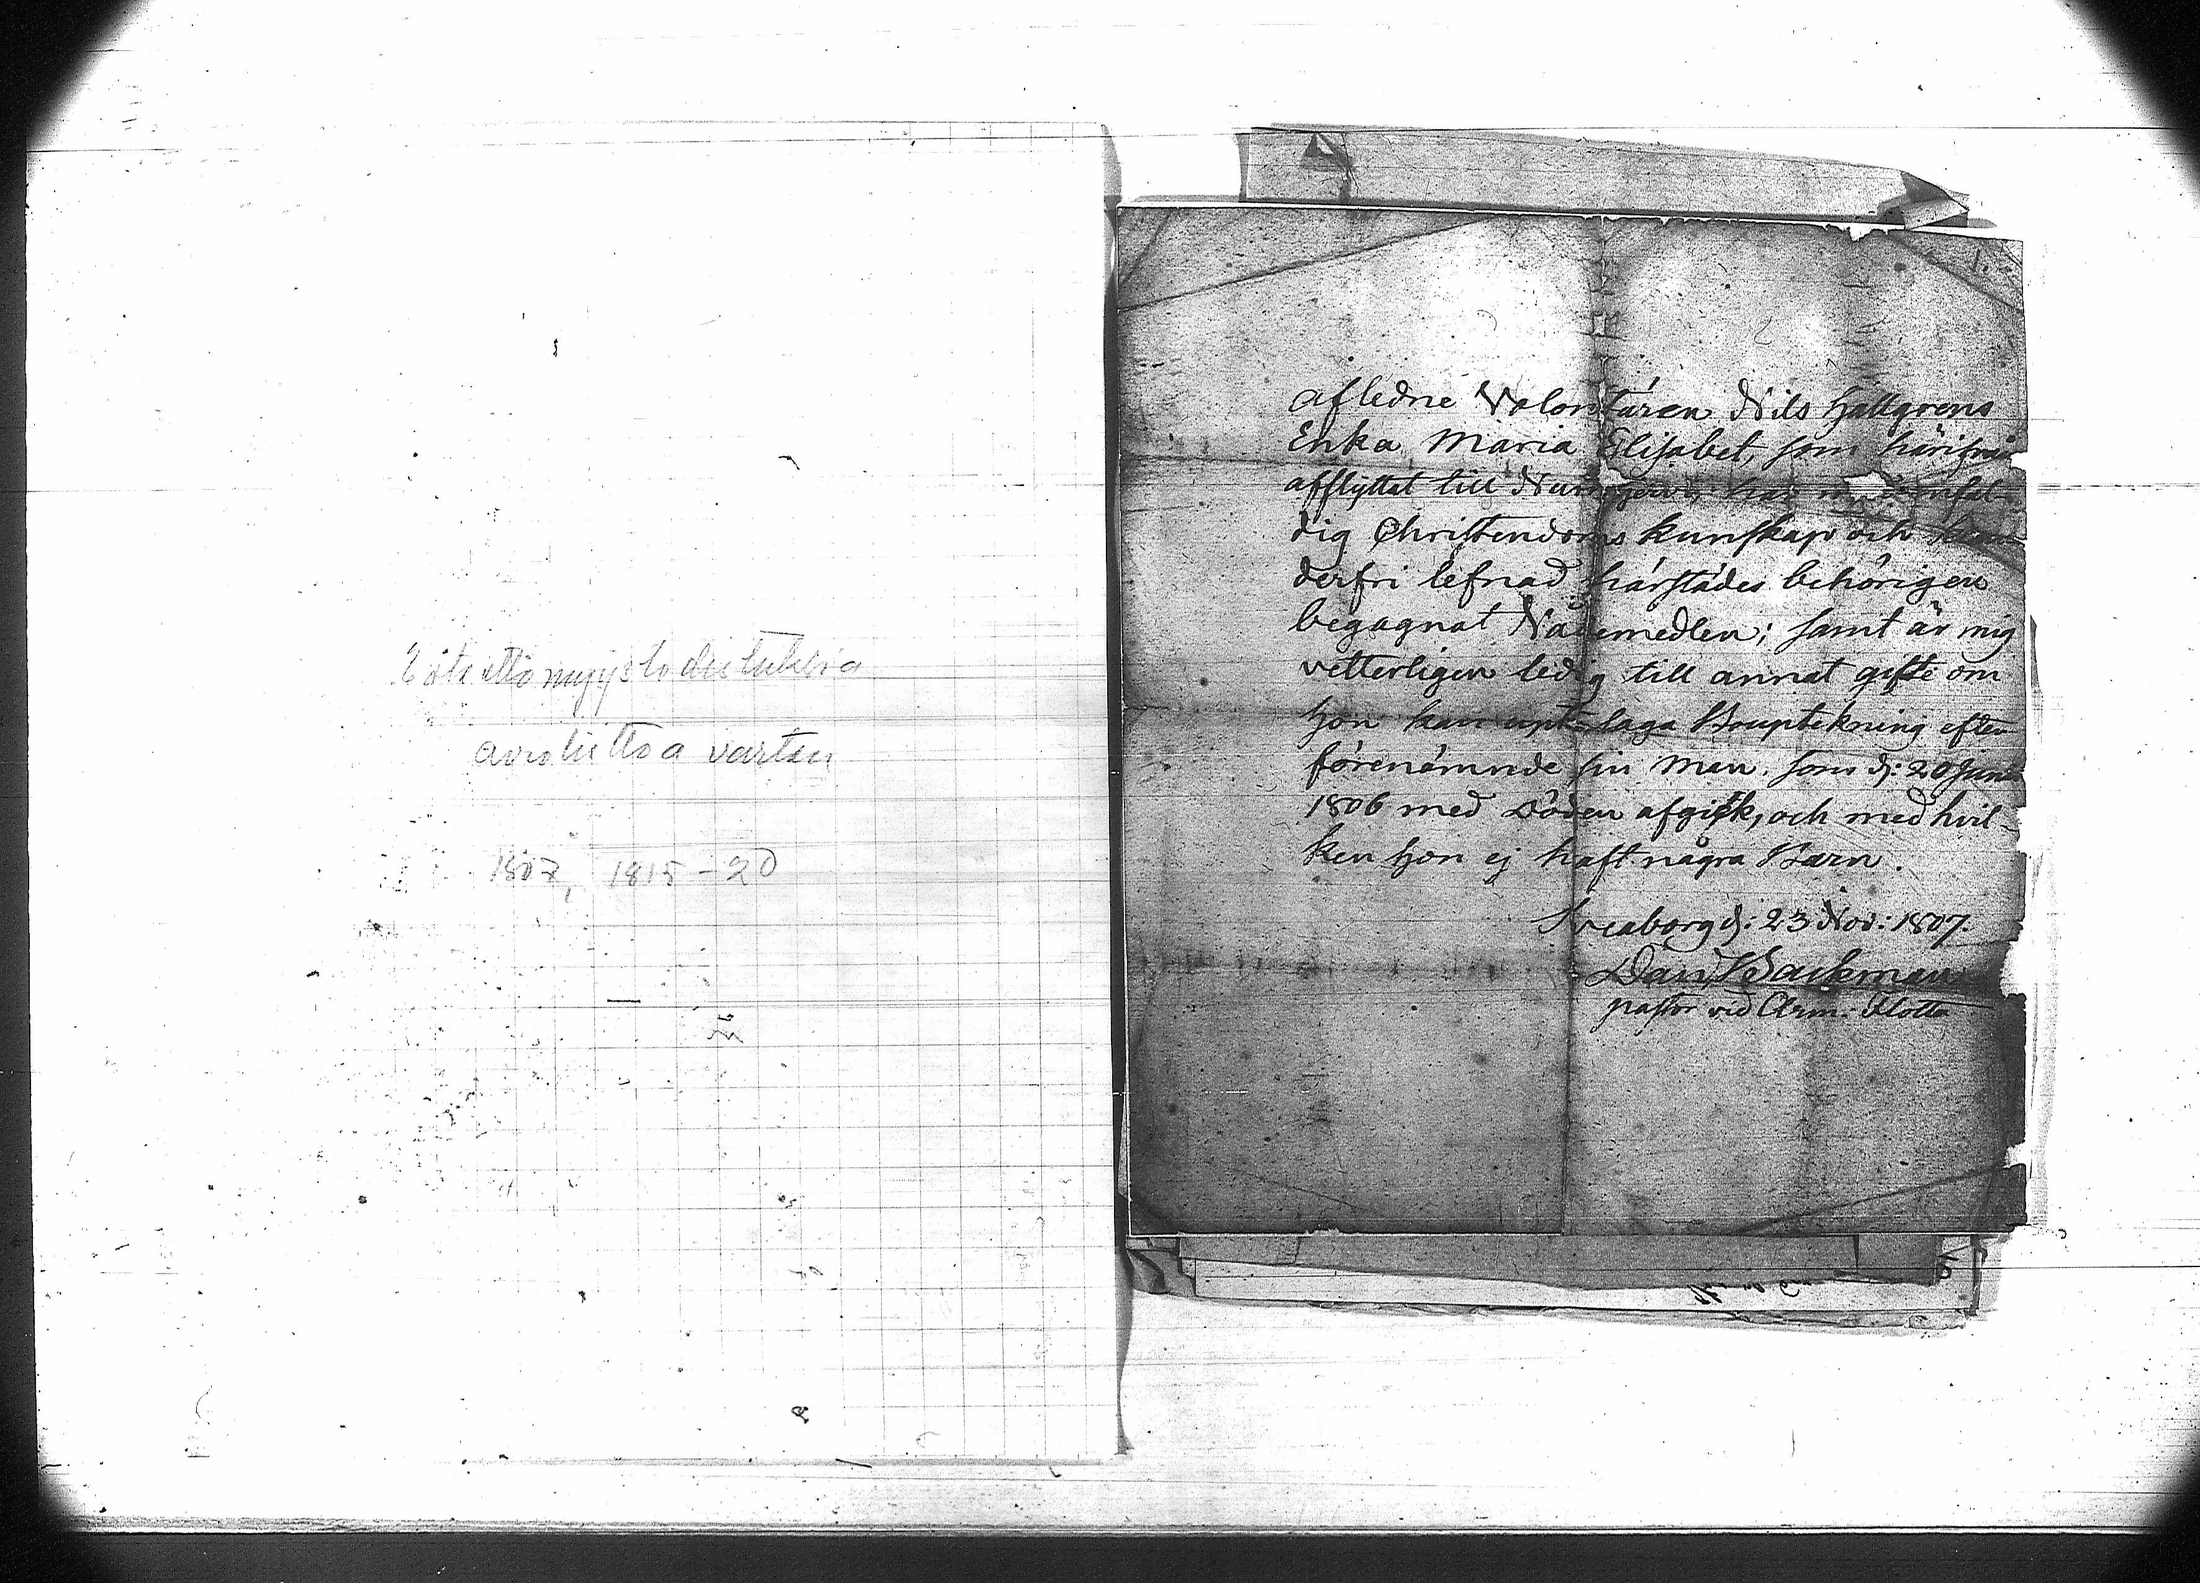 Esteettömyystodistuksia
avioliittoa varten
1807, 1815-20
Afledne Volontären Nils Hällgrens
Enka Maria Elisabet, som härifrån
afflyttat till har med enfal-
dig Christendoms kunskap och klan-
derfri lefnad härstädes behörigen
begagnat Nådemedlen; samt är mig
vetterligen ledig till annat gifte om
hon kan uppte laga Bouptekning efter
förenämnde sin Man, som d: 20 Junii
1806 med Döden afgick, och med hvil-
ken hon ej haft några Barn.
Sveaborg d: 23 Nov: 1807.
Dan. Backman
pastor vid Arm: Flotta